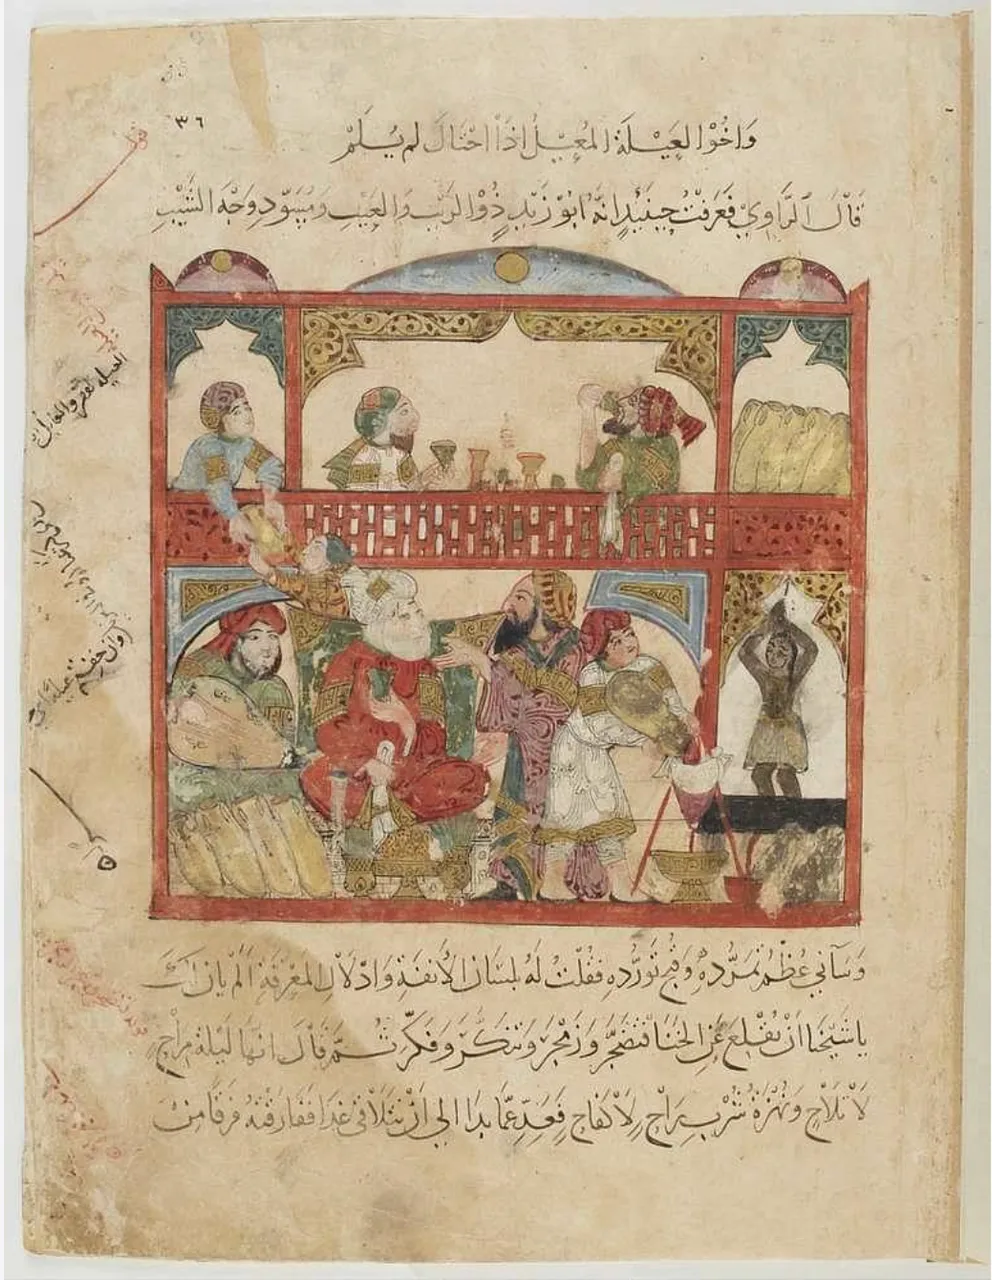 ٣٦
وَاخُوْا لعَيْلَةِ المُعِيْلُ اذَا احْتَالَ لم يُلَمْ
قَالَ الرَّاوِيْ فَعَرَفْتُ حِينَئِدٍ انهُ ابُوْ زَيْدٍ ذُوْ الرَيْبِ وَالعَيْبِ وَمُسَوّد وَجْهِ الشَيْبِ
وَسَآنِي عُظْمُ تمَرُّدهِ وَقُبْحُ تَوَرُّدهِ فقُلْتُ لَهُ بلسَانِ الأنفَةِ وَادْلاَلِ المعْرِفَةِ المْ يانِ لَكَ
يا شَيْخنَا انْ تُقْلِعَ عَنِ الخَنَا فتَضَجَّرَ وَزَمْجَرَ وَتَنَكَّرَ وَفَكَّرَ ثُمَّ قَالَ انهَا لَيْلَةُ مِرَاحٍ
لاَ تَلاَحٍ وَنُهْزَةُ شُرْبِ رَاحٍ لاَ كِفَاحٍ فَعَدِّ عَمَّا بدَا الى انْ نتَلاَقى غَدًا ففَارَقْتهُ فرَقًا مِنْ